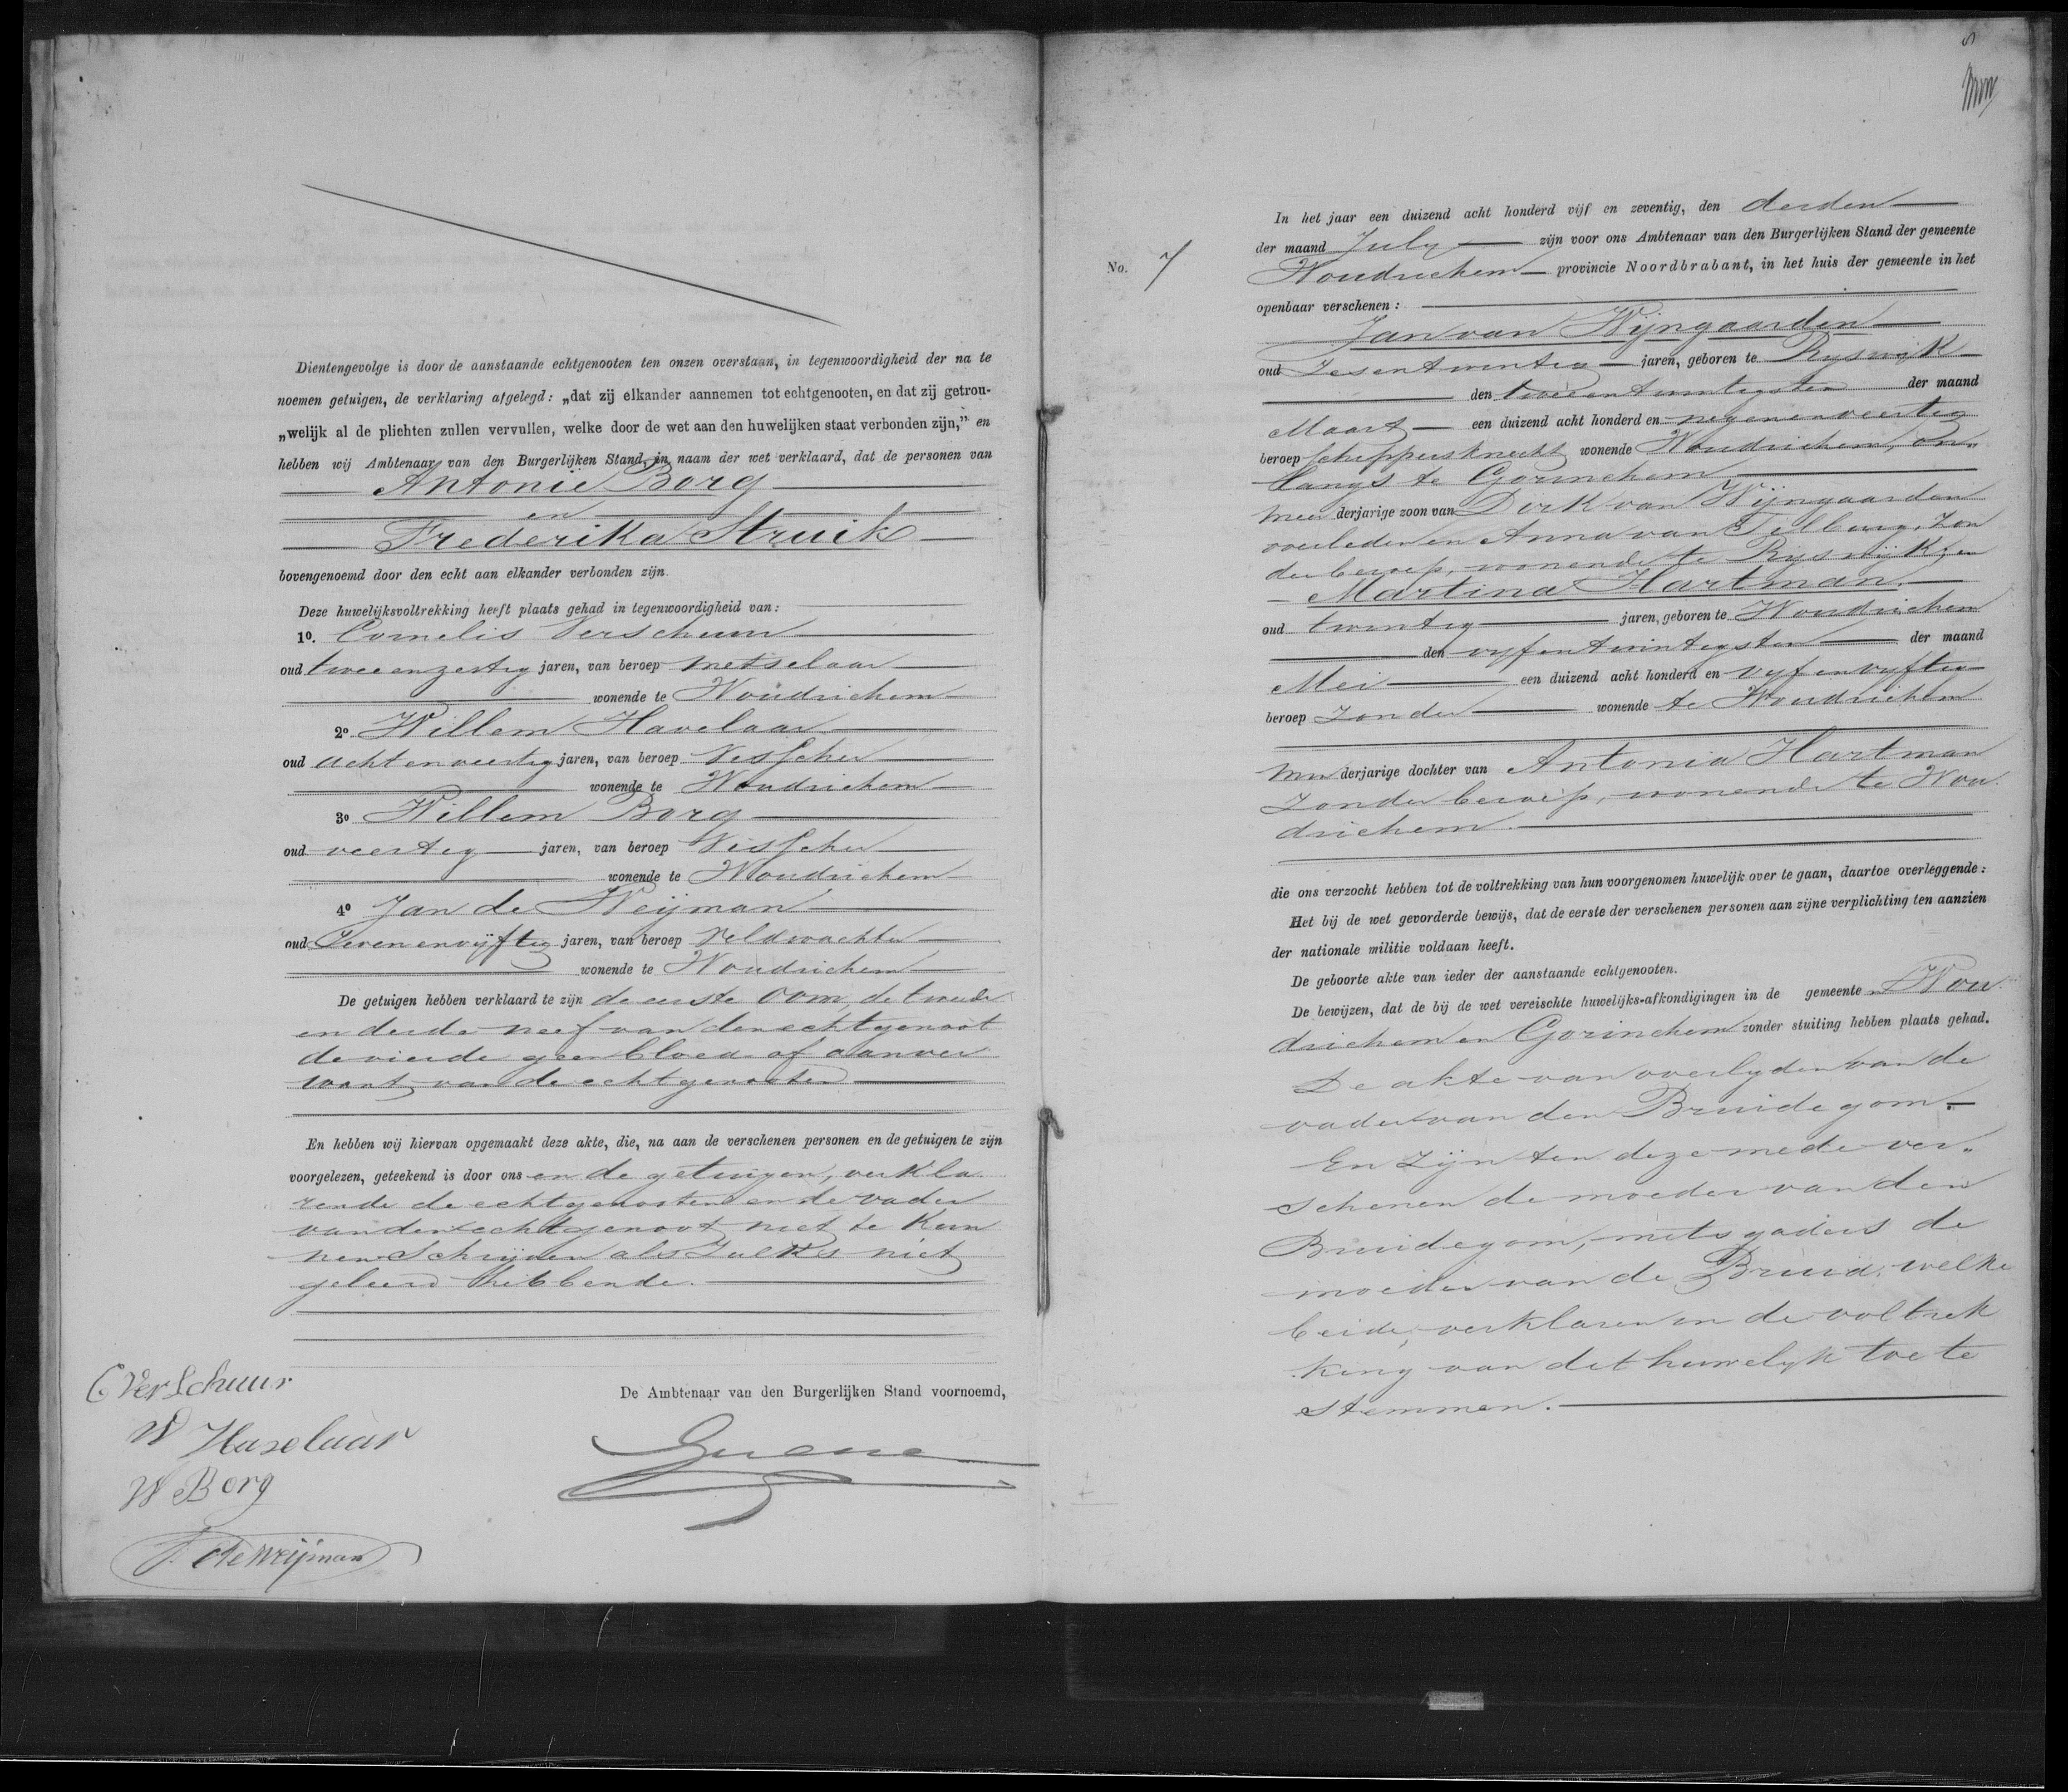 Dientengevolge is door de aanstaande echtgenooten ten onzen overstaan, in tegenwoordigheid der na te
noemen getuigen, de verklaring afgelegd: „dat zij elkander aannemen tot echtgenooten, en dat zij getrou-
„welijk al de plichten zullen vervullen, welke door de wet aan den huwelijken staat verbonden zijn,” en
hebben wij Ambtenaar van den Burgerlijken Stand, in naam der wet verklaard, dat de personen van
Antonie Borg
en
Frederika Struik
bovengenoemd door den echt aan elkander verbonden zijn.
Deze huwelijksvoltrekking heeft plaats gehad in tegenwoordigheid van:
1o. Cornelis Verschuur
oud twee en zestig jaren, van beroep metselaar
wonende te Woudrichem
2o Willem Havelaar
oud acht en veertig jaren, van beroep Visscher
wonende te Woudrichem
3o Willem Borg
oud veertig jaren, van beroep Visscher
wonende te Woudrichem
4o Jan de Weijman
oud Zeven en vijftig jaren, van beroep Veldwachter
wonende te Woudrichem
De getuigen hebben verklaard te zijn de eerste oom, de tweede
en derde neef van den echtgenoot
de vierde geen bloed of aanver
want van de echtgenooten
En hebben wij hiervan opgemaakt deze akte, die, na aan de verschenen personen en de getuigen te zijn
voorgelezen, geteekend is door ons en de getuigen, verkla
rende de echtgenooten en de vader
van den echtgenoot niet te kun
nen Schrijven als Zulks niet
geleerd hebbende.
De Ambtenaar van den Burgerlijken Stand voornoemd,
C Verschuur
W Havelaar
W Borg
J. de Weijman
No. 7
In het jaar een duizend acht honderd vijf en zeventig, den derden
der maand July zijn voor ons Ambtenaar van den Burgerlijken Stand der gemeente
Woudrichem provincie Noordbrabant, in het huis der gemeente in het
openbaar verschenen:
Jan van Wijngaarden
oud Zesentwintig jaren, geboren te Rijswijk
den tweeentwintigsten der maand
Maart een duizend acht honderd en negenenveertig
beroep schippersknecht wonende Woudrichem, on„
langs te Gorinchem
meerderjarige zoon van Dirk van Wijngaarden
overleden en Anna van Tilburg, Zon
der beroep, wonende te Rijswijk, en
Martina Hartman
oud twintig jaren, geboren te Woudrichem
den vyfentwintigsten der maand
Mei een duizend acht honderd en vyfenvyftig
beroep Zonder wonende te Woudrichem
minderjarige dochter van Antonia Hartman
Zonder beroep, wonende te Wou
drichem.
die ons verzocht hebben tot de voltrekking van hun voorgenomen huwelijk over te gaan, daartoe overleggende:
Het bij de wet gevorderde bewijs, dat de eerste der verschenen personen aan zijne verplichting ten aanzien
der nationale militie voldaan heeft.
De geboorte akte van ieder der aanstaande echtgenooten.
De bewijzen, dat de bij de wet vereischte huwelijks-afkondigingen in de gemeente Wou
drichem en Gorinchem zonder stuiting hebben plaats gehad.
De akte van overlyden van de
vader van den Bruidegom.
En Zijn ten deze mede ver„
schenen de moeder van den
Bruidegom, mitsgaders de
moeder van de Bruid, welke
beide verklaren in de voltrek
king van dit huwelyk toe te
stemmen.